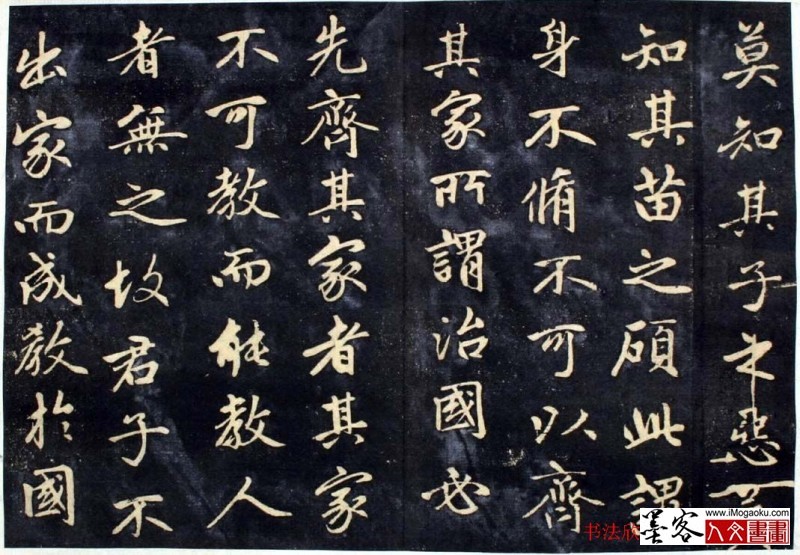 莫知其子之惡
知其苗之碩此謂
身不脩不可以齊
其家所謂治國必
先齊其家者其家
不可教而能教人
者無之故君子不
出家而成教於國
书法欣
墨客
www.iMogaoku.com
人文書畫